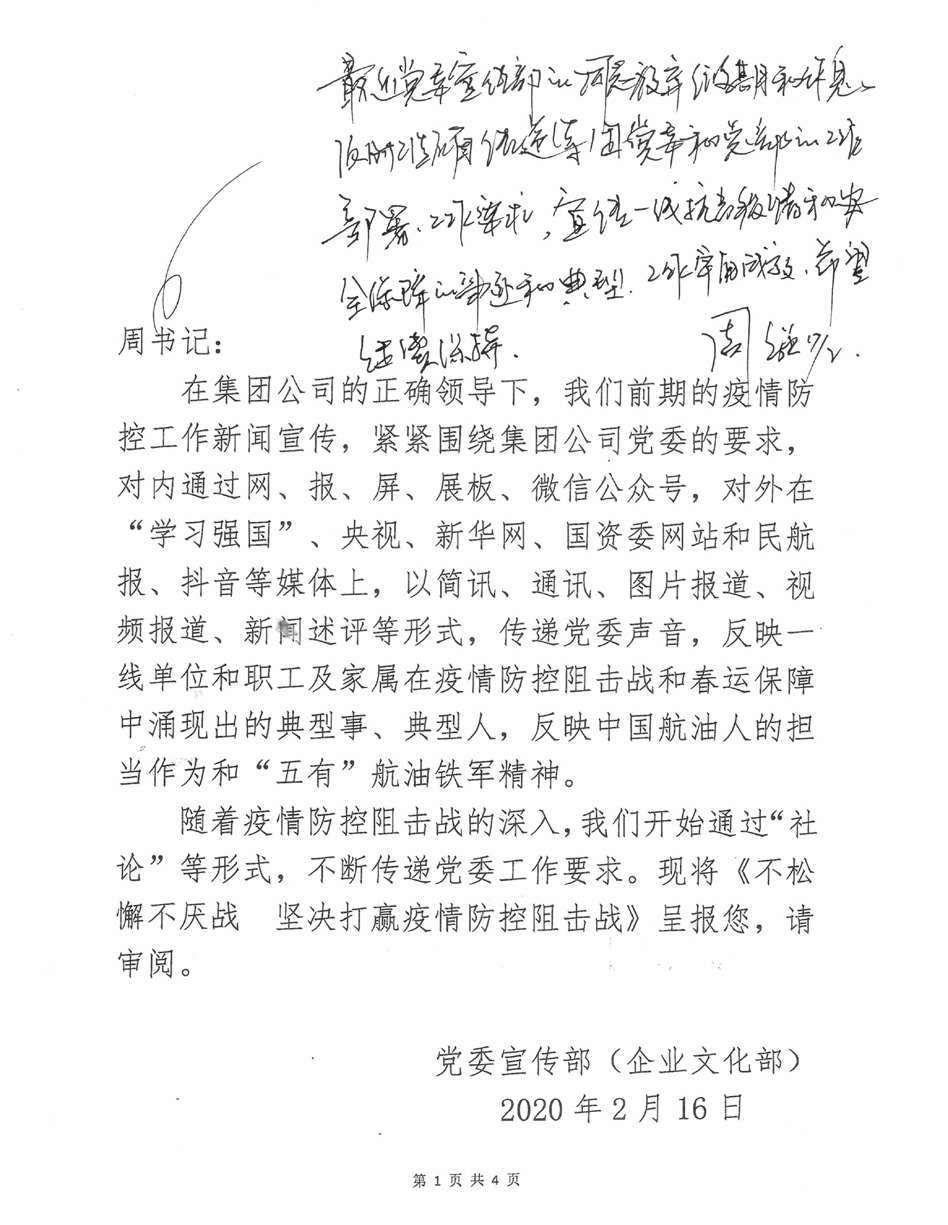 最近党委宣传部
及时准确传递集团党委和党组的工作
部署、工作要求，宣传一线抗击疫情和安
全保障的事迹和典型，工作富有成效，希望
继续保持。 周强 17/2.
周书记：
在集团公司的正确领导下，我们前期的疫情防
控工作新闻宣传，紧紧围绕集团公司党委的要求，
对内通过网、报、屏、展板、微信公众号，对外在
“学习强国”、央视、新华网、国资委网站和民航
报、抖音等媒体上，以简讯、通讯、图片报道、视
频报道、新闻述评等形式，传递党委声音，反映一
线单位和职工及家属在疫情防控阻击战和春运保障
中涌现出的典型事、典型人，反映中国航油人的担
当作为和“五有”航油铁军精神。
随着疫情防控阻击战的深入，我们开始通过“社
论”等形式，不断传递党委工作要求。现将《不松
懈不厌战　坚决打赢疫情防控阻击战》呈报您，请
审阅。
党委宣传部（企业文化部）
2020 年 2 月 16 日
第 1 页 共 4 页